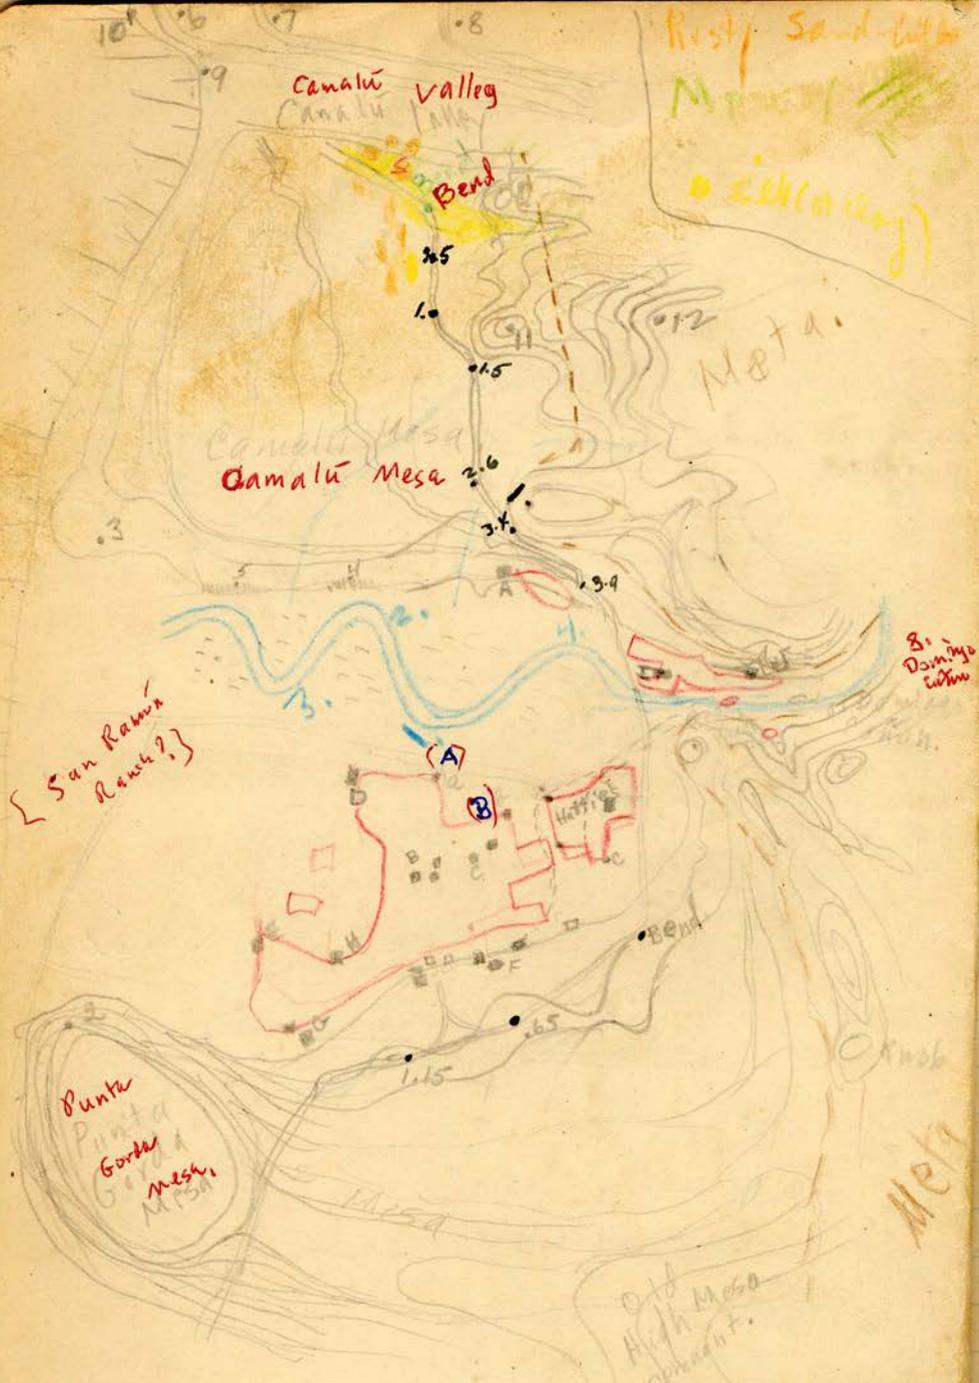 10
.6
.7
.8
Rusty Sand-
.9
Camalú Valley
Camalú Valley
Bend
silt (or clay)
2.5
1.
11
.12
.1.5
Meta.
Camalú Mesa
Camalú Mesa
2.6
1.
3.4.
.3
5
4
A
.3.9
2.
4.
3.
S.
Domingo
[San Ramón
Ranch?]
(A)
a
(B)
D
Hattie
B
C
C
E
H
Bend
F
G
.65
1.15
2
Knob
Punta
Gorda
Mesa.
Punta
Gorda
Mesa
Mesa
Meta
Old
High Mesa